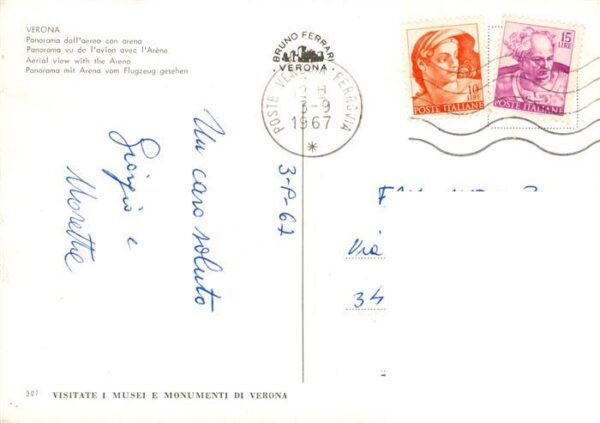 VERONA
Panorama dall'aereo con arena
Panorama vu de l'avion avec l'Arène
Aerial view with the Arena
Panorama mit Arena vom Flugzeug gesehen
BRUNO FERRARI
VERONA
POSTE FERROVIA
3-9
1967
10
LIRE
POSTE ITALIANE
15
LIRE
POSTE ITALIANE
Un caro saluto
Giorgio e
3-9-67
Via
34
307 VISITATE I MUSEI E MONUMENTI DI VERONA